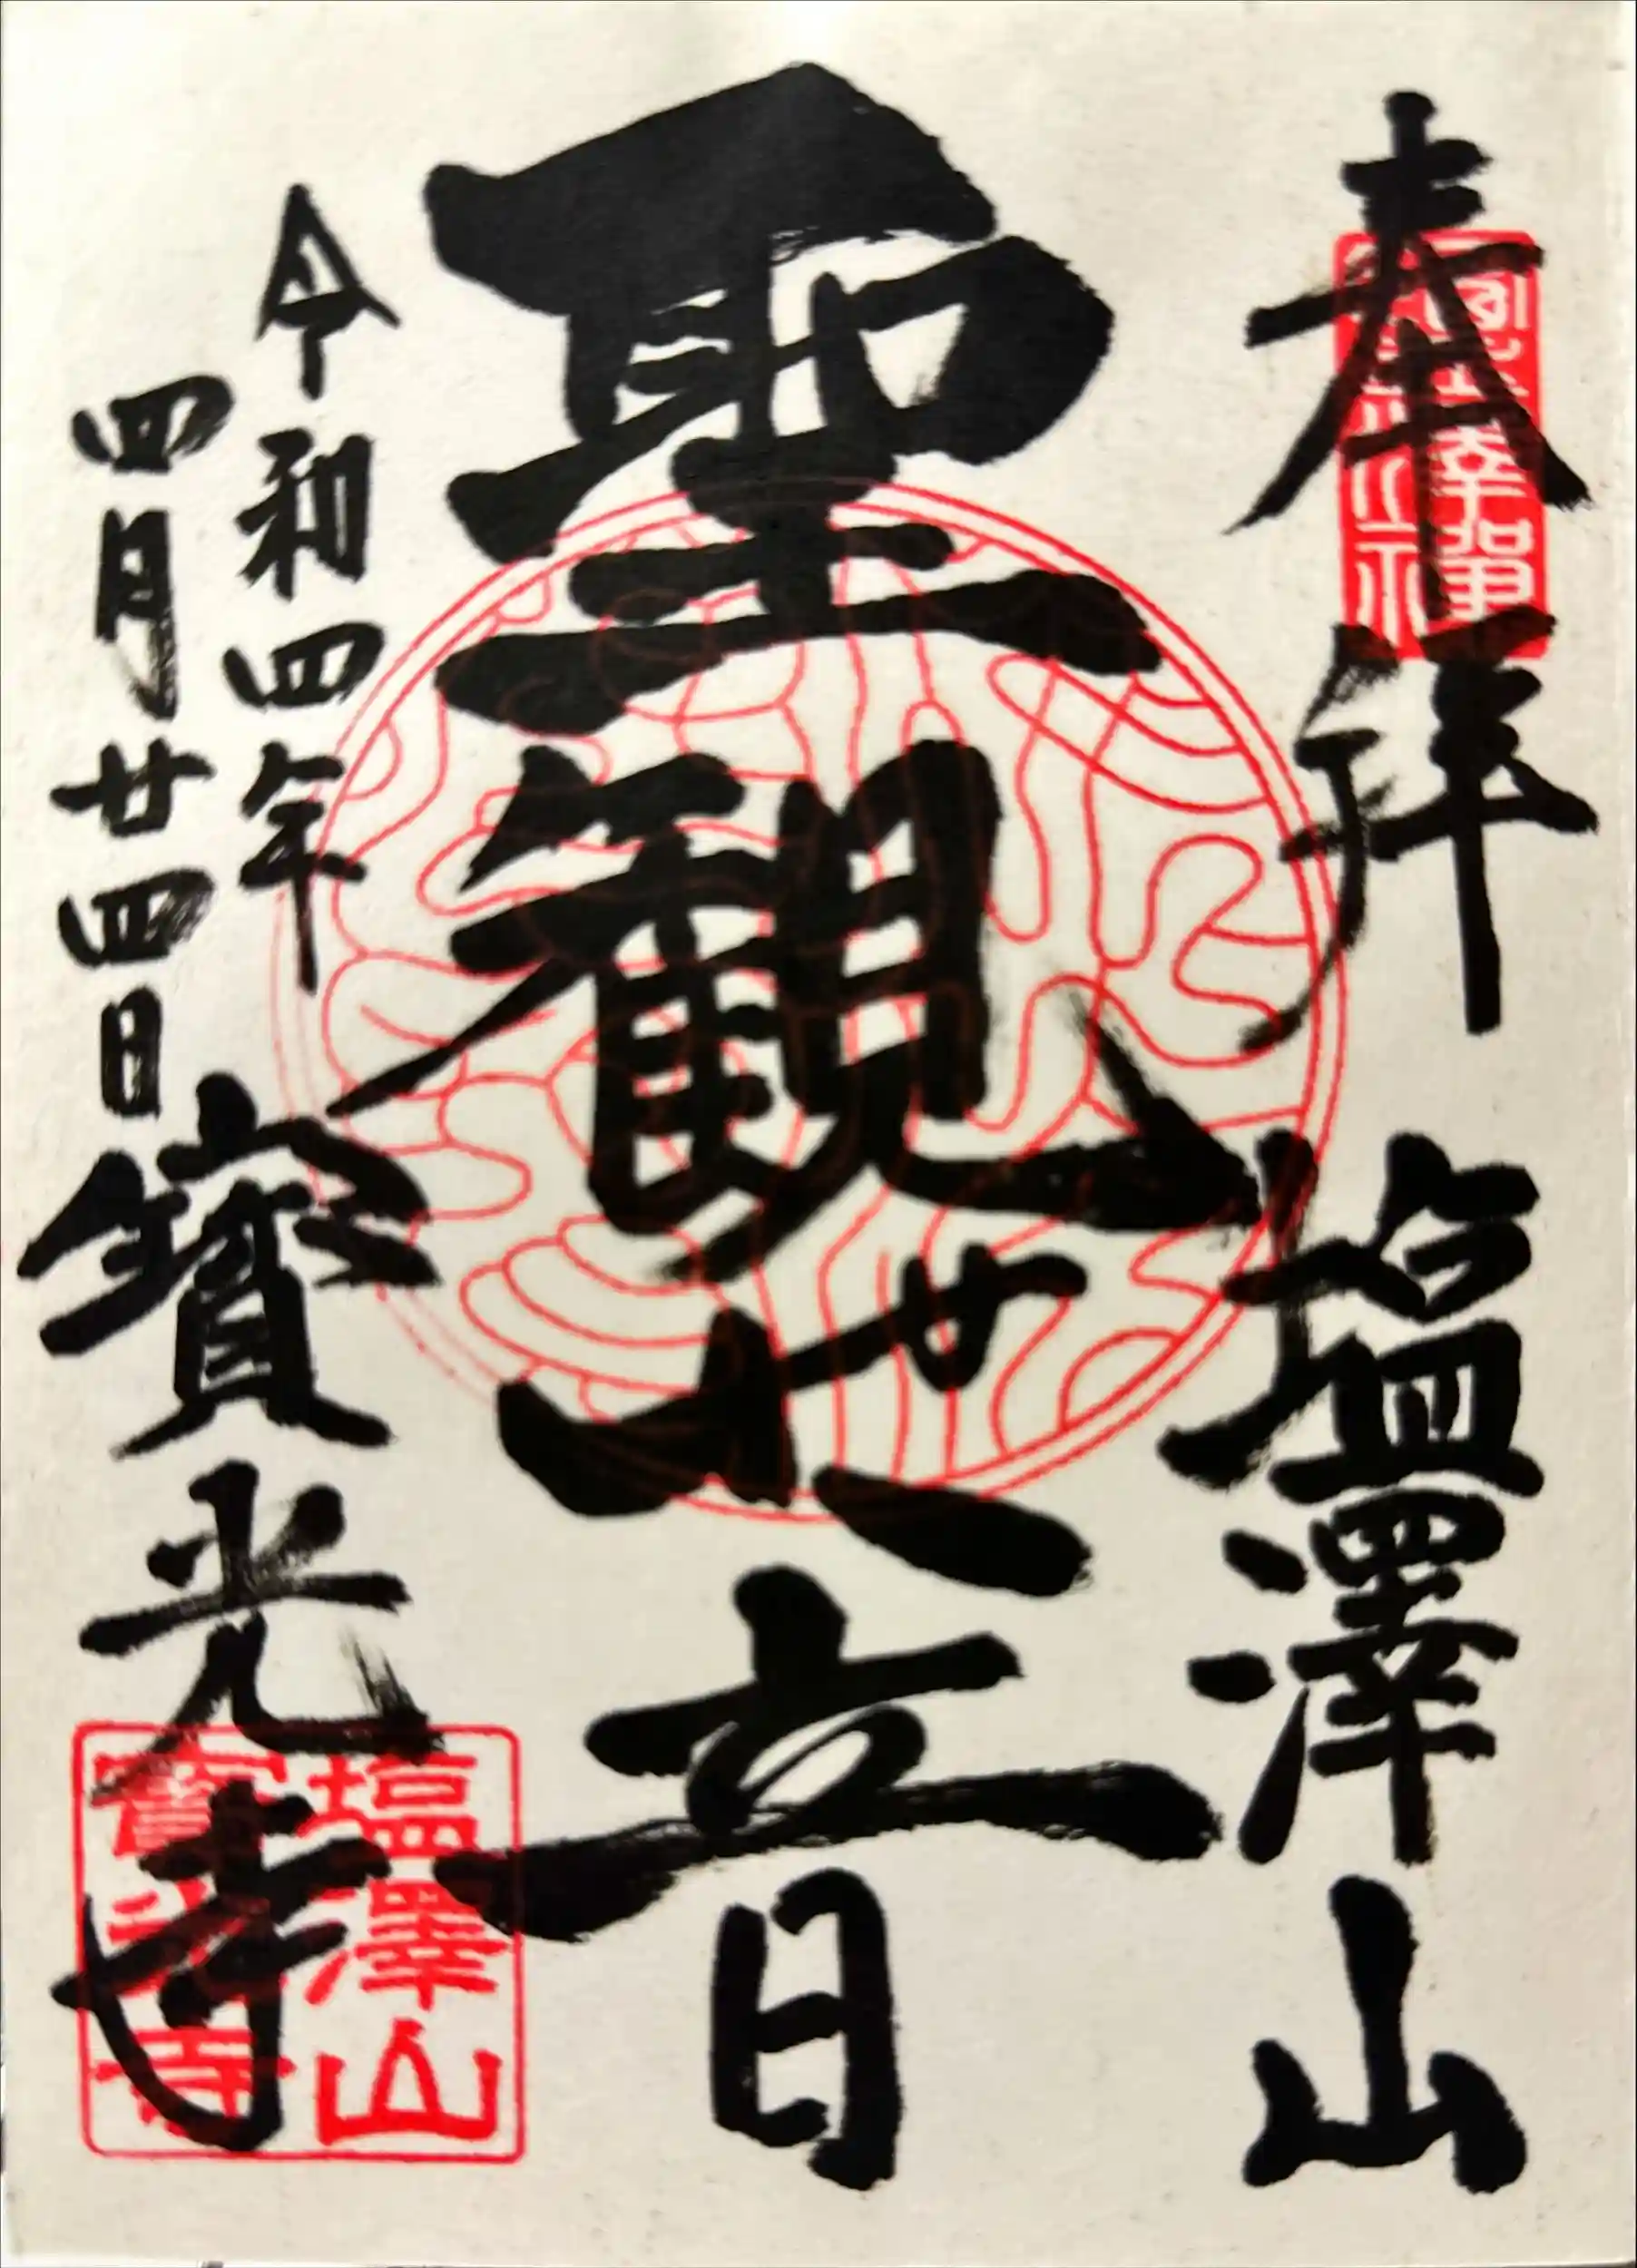 奉拝 塩澤山
聖観世音
令和四年
四月廿四日
寳光寺
塩澤山
寳光寺